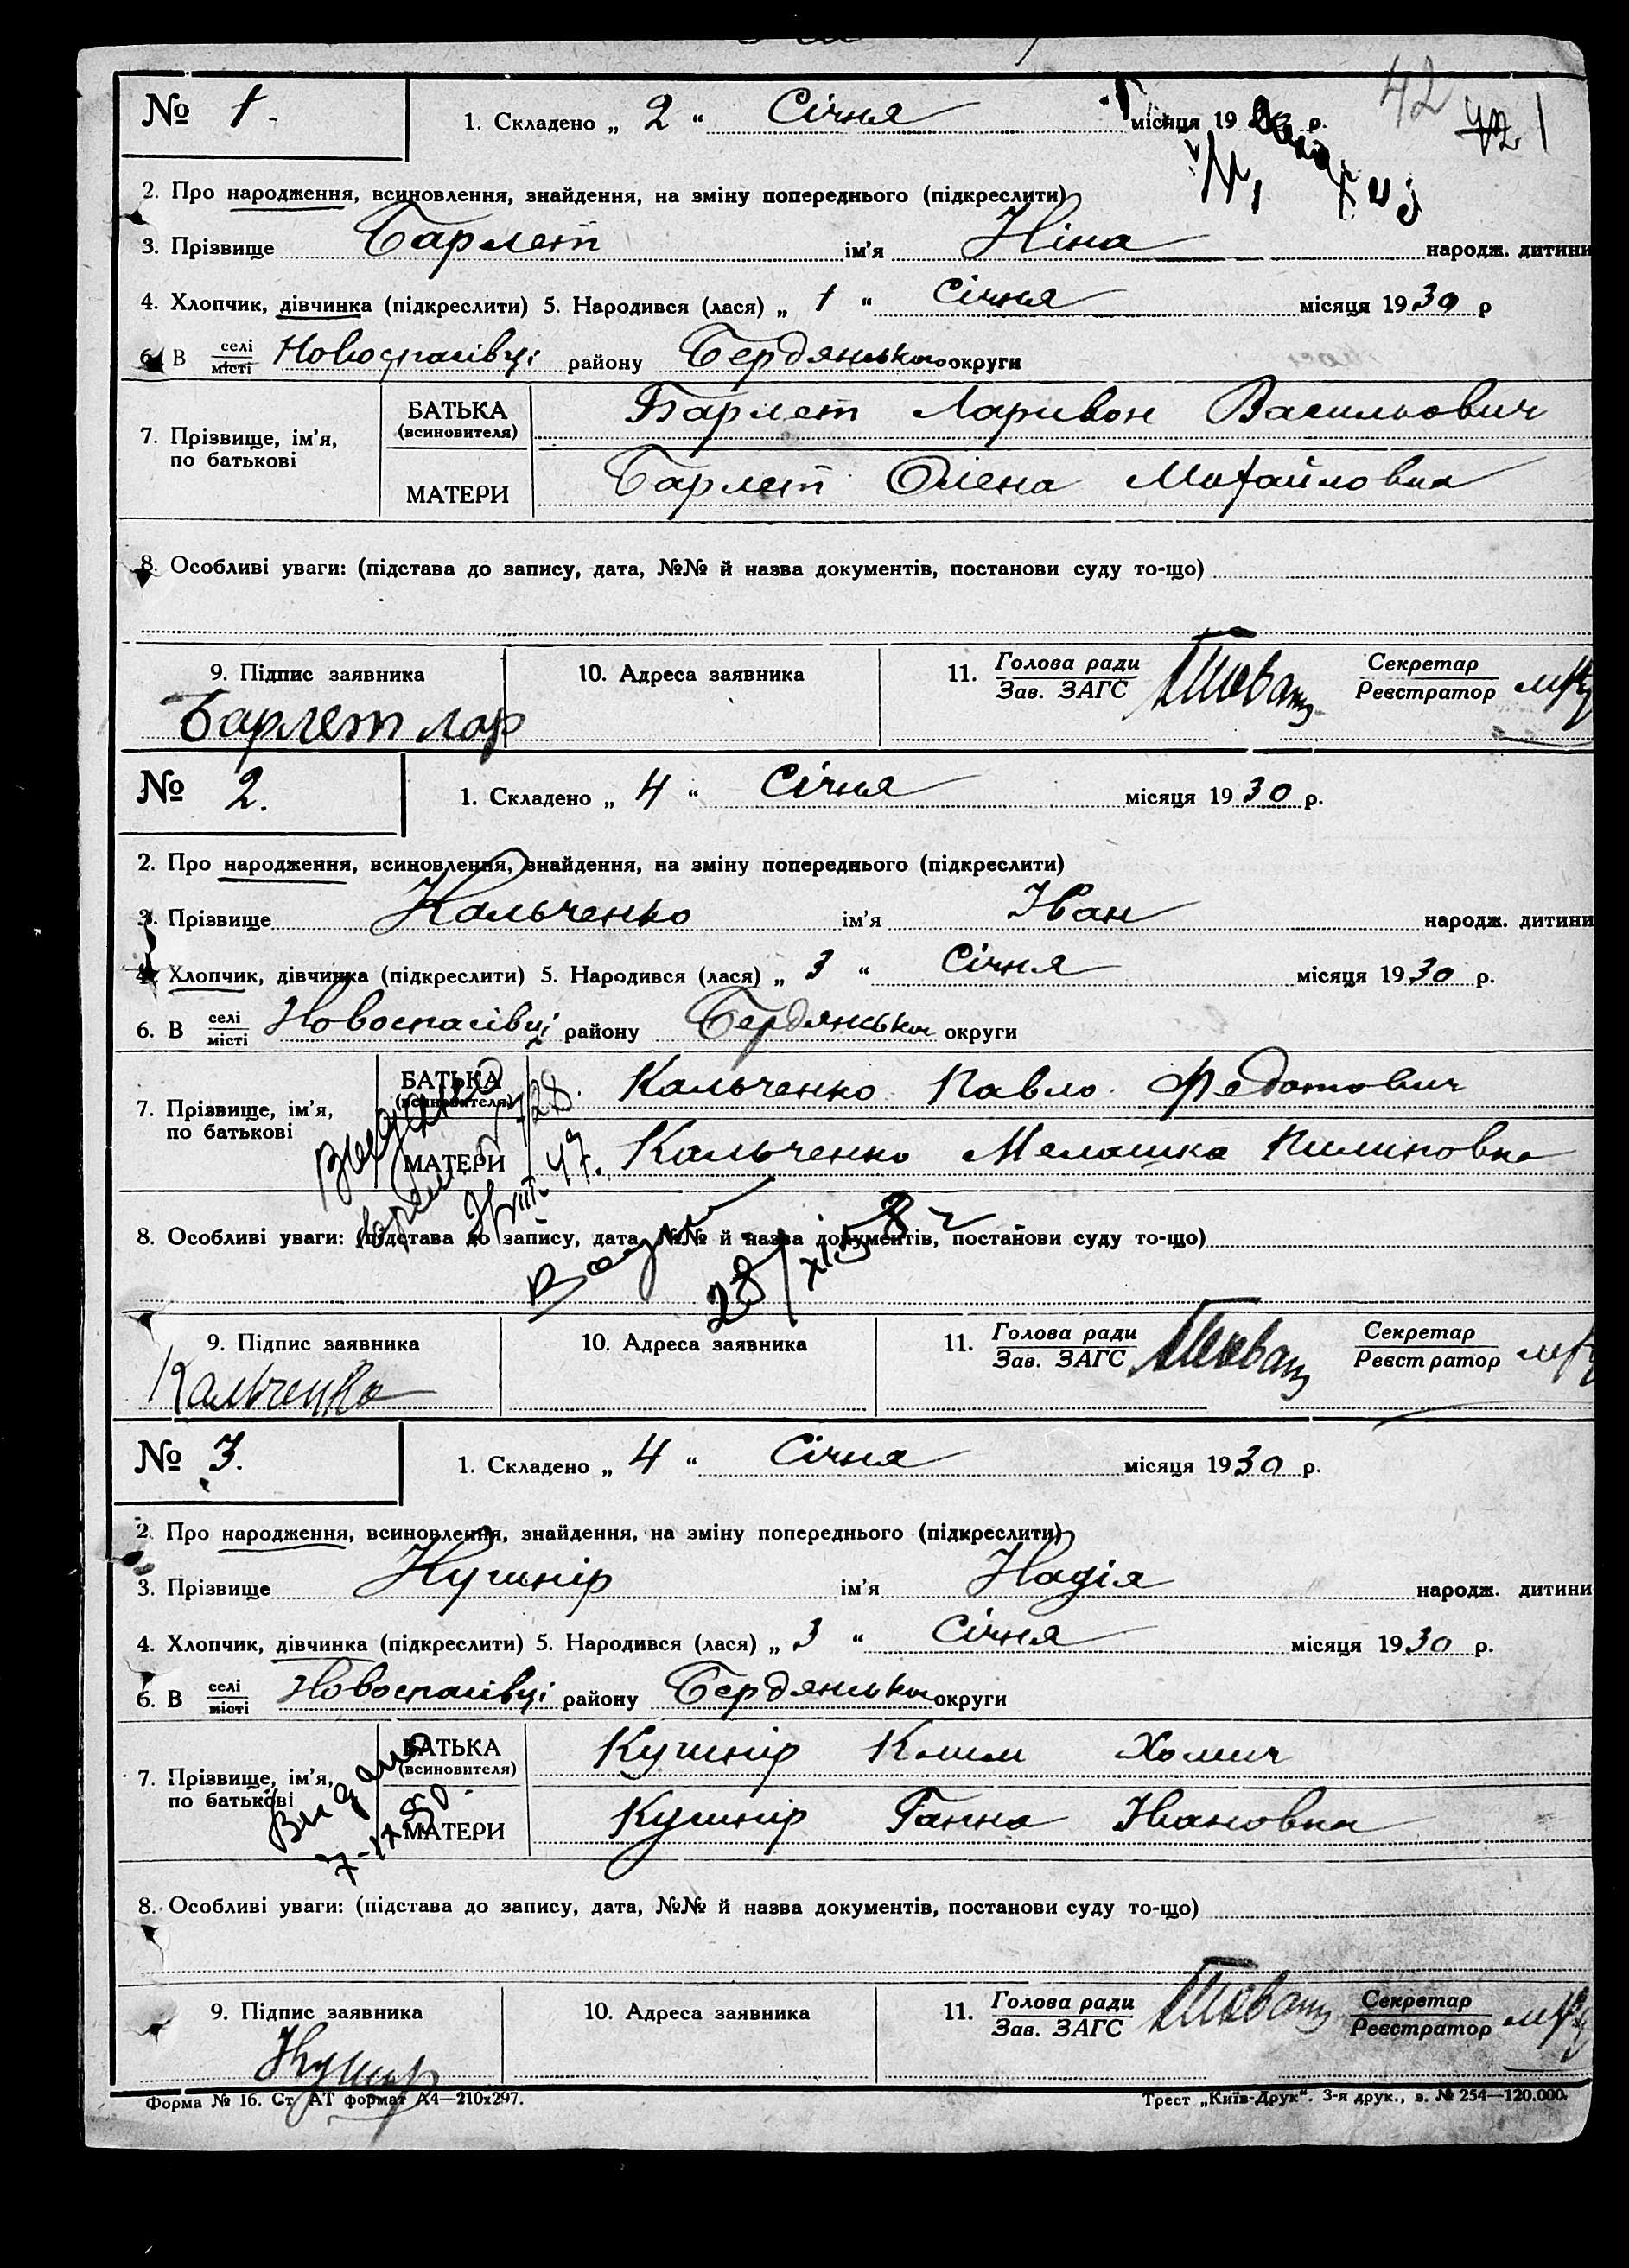 42 42 1
№ 1. 1. Складено „ 2 “ Січня місяця 19 р.
2. Про народження, всиновлення, знайдення, на зміну попереднього (підкреслити)
3. Прізвище Барлет ім'я Ніна народж. дитини
4. Хлопчик, дівчинка (підкреслити) 5. Народився (лася) „ 1 “ Січня місяця 1930 р
6. В селі/місті Новоспасівці району Бердянсько округи
7. Прізвище, ім'я, по батькові
БАТЬКА (всиновителя) Барлет Ларивон Васильович
МАТЕРИ Барлет Олена Михайловна
8. Особливі уваги: (підстава до запису, дата, №№ й назва документів, постанови суду то-що)
9. Підпис заявника 10. Адреса заявника 11. Голова ради/Зав. ЗАГС Секретар/Реєстратор
Барлет Лар
№ 2. 1. Складено „ 4 “ Січня місяця 1930 р.
2. Про народження, всиновлення, знайдення, на зміну попереднього (підкреслити)
3. Прізвище Кальченко ім'я Іван народж. дитини
4. Хлопчик, дівчинка (підкреслити) 5. Народився (лася) „ 3 “ Січня місяця 1930 р.
6. В селі/місті Новоспасівці району Бердянсько округи
7. Прізвище, ім'я, по батькові
БАТЬКА (всиновителя) Кальченко Павло Федотович
МАТЕРИ Кальченко Мелашка Пилиповна
8. Особливі уваги: (підстава до запису, дата, №№ й назва документів, постанови суду то-що)
9. Підпис заявника 10. Адреса заявника 11. Голова ради/Зав. ЗАГС Секретар/Реєстратор
Кальченко
№ 3. 1. Складено „ 4 “ Січня місяця 1930 р.
2. Про народження, всиновлення, знайдення, на зміну попереднього (підкреслити)
3. Прізвище Кушнір ім'я Надія народж. дитини
4. Хлопчик, дівчинка (підкреслити) 5. Народився (лася) „ 3 “ Січня місяця 1930 р.
6. В селі/місті Новоспасівці району Бердянсько округи
7. Прізвище, ім'я, по батькові
БАТЬКА (всиновителя) Кушнір Клим Хомич
МАТЕРИ Кушнір Ганна Івановна
Видано
8. Особливі уваги: (підстава до запису, дата, №№ й назва документів, постанови суду то-що)
9. Підпис заявника 10. Адреса заявника 11. Голова ради/Зав. ЗАГС Секретар/Реєстратор
Кушнір
Форма № 16. Ст АТ формат А4—210х297. Трест „Київ-Друк“. 3-я друк., з. № 254—120.000.